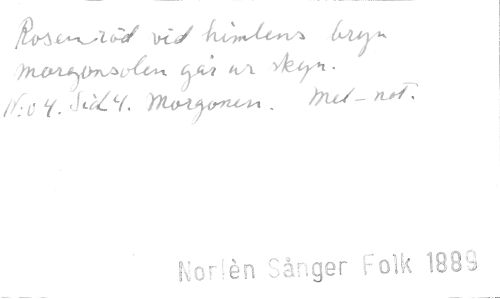 Rosenröd vid himlens bryn
morgonsolen går ur skyn.
N:o 4. Sid 4. Morgonen. Mel-not.
Norlèn Sånger Folk 1889